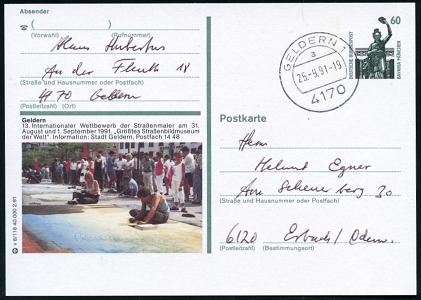 Absender
(Vorwahl) (Rufnummer)
Klaus Hubertus
An der Fleuth 18
(Straße und Hausnummer oder Postfach)
4170 Geldern
(Postleitzahl) (Ort)
Geldern
13. Internationaler Wettbewerb der Straßenmaler am 31.
August und 1. September 1991. „Größtes Straßenbildmuseum
der Welt". Information: Stadt Geldern, Postfach 14 48
GELDERN 1
a
25.-9.91-19
4170
60
DEUTSCHE BUNDESPOST
BAVARIA MÜNCHEN
Postkarte
Herrn
Helmut Egner
Am Scheuerberg 30
(Straße und Hausnummer oder Postfach)
6120 Erbach/Odenw.
(Postleitzahl) (Bestimmungsort)